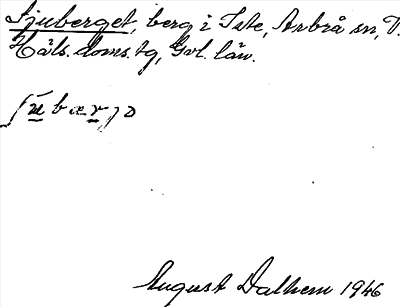 Sjuberget, berg i Iste, Arbrå sn, V.
Häls. doms. tg, Gvl. län.
August Dalhem 1946